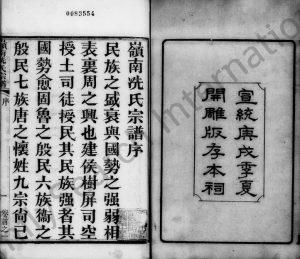 0083554
宣統庚戌季夏
開雕版存本祠
嶺南冼氏宗譜序
民族之盛衰與國勢之強弱相
表裏周之興也建侯樹屏司空
授土司徒授民其民族強者其
國勢愈固魯之殷民六族衞之
殷民七族唐之懷姓九宗尙已
嶺南冼氏宗譜
序